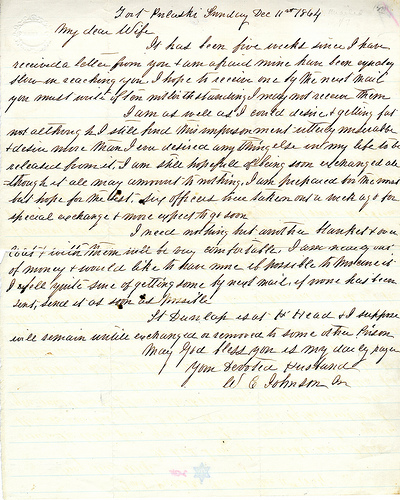 Fort Pulaski Sunday Dec 11th 1864
My dear Wife
It has been five weeks since I have
received a letter from you & am afraid mine have been equally
slow in reaching you. I hope to receive one by the next mail
you must write often notwithstanding I may not receive them
I am as well as I could desire & getting fat
not although I still find this imprisonment utterly miserable
& desire more than I ever desired anything else in my life to be
released from it, I am still hopefull of being soon exchanged al
though it all may amount to nothing, I am prepared for the worst
but hope for the best. six officers were taken out a week ago for
special exchange & more expect to go soon
I need nothing but another blanket & over
coat & with them will be very comfortable. I am nearly out
of money & would like to have more if possible to
I feel quite sure of getting some by next mail, if more has been
sent, send it as soon as possible
Lt Dunlap is at H Head & I suppose
will remain untill exchanged or removed to some other Prison
May God bless you is my daily prayer
Your Devoted Husband
W E Johnson Jr